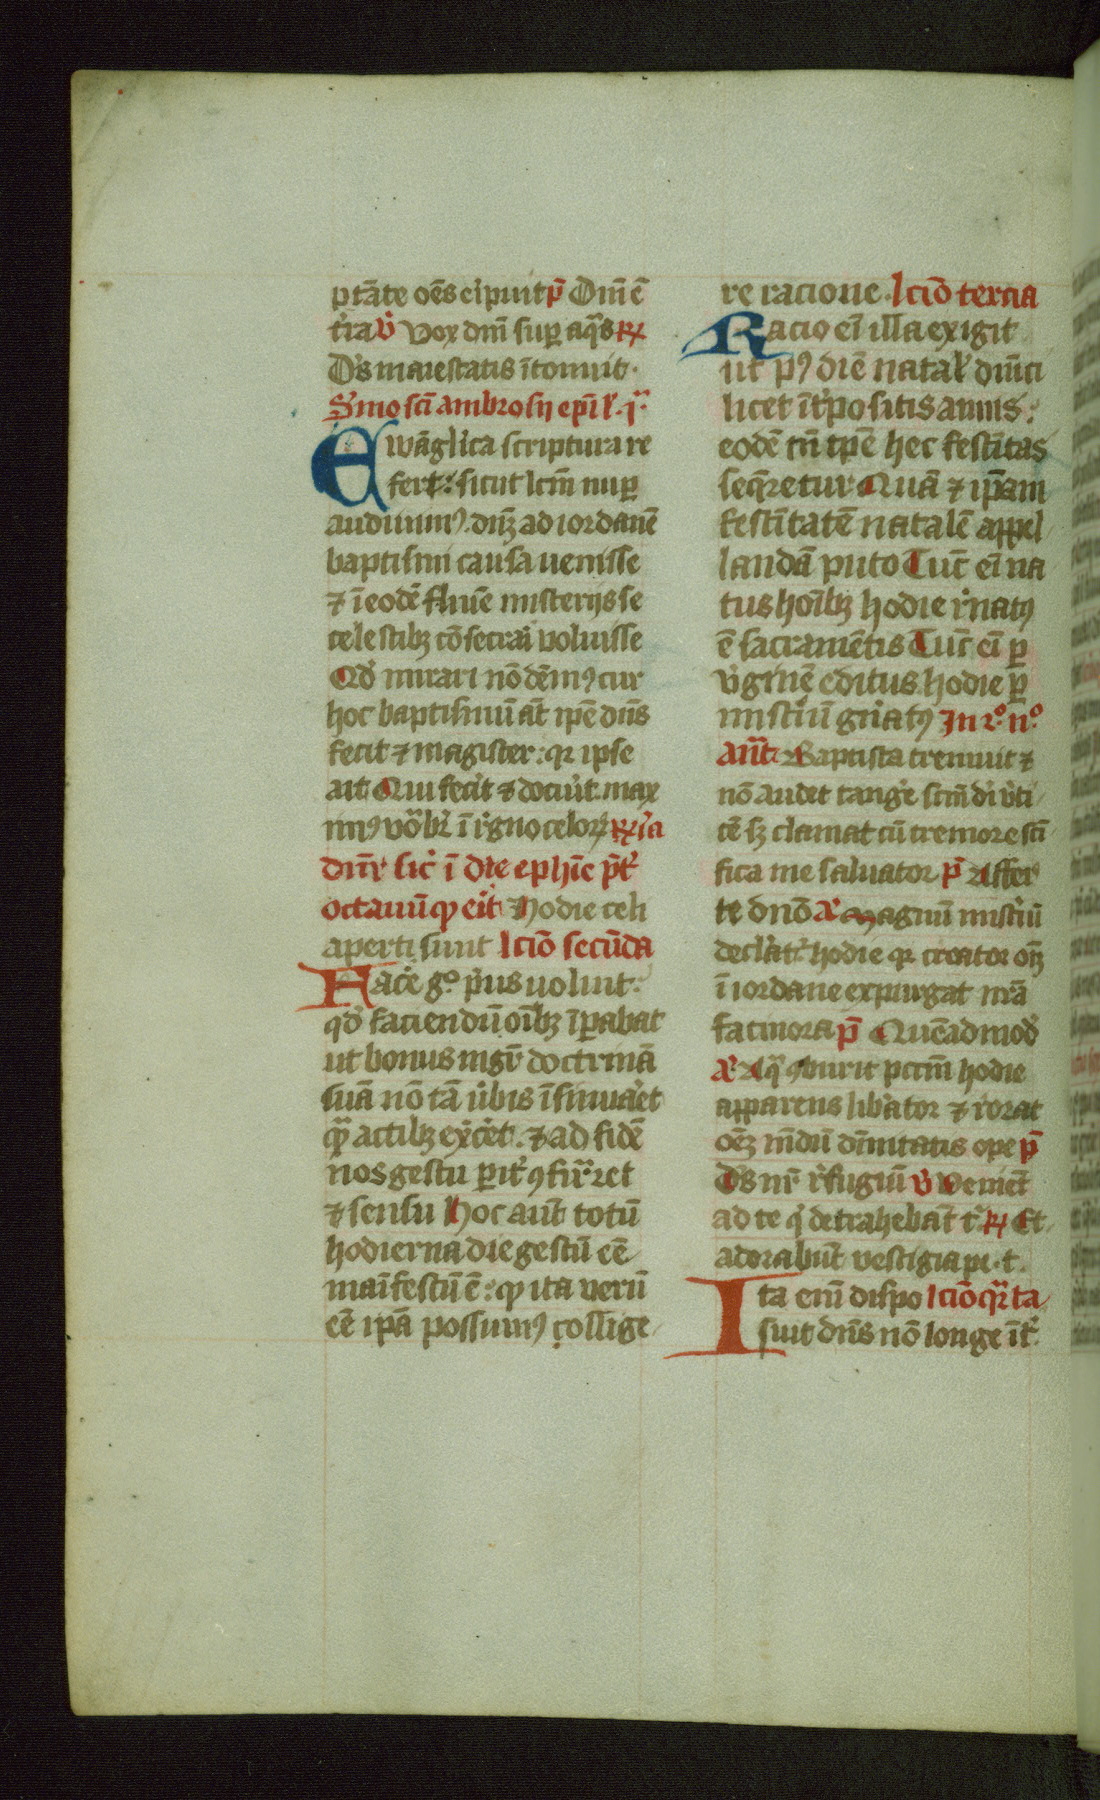 ptāte oēs eipuit p̄ Dm̄ ē
t'ra v̓ Vox dm̄ sup aq̄s ꝶ
D's maiestatis ītonuit.
S'mo scī ambrosij ep̄i l'. jª.
Ewāglica scriptura re
fert: sicut lcm̄ nuꝑ
audiuimꝰ. dn̄ꝫ ad iordanē
baptismi causa uenisse
⁊ ī eodē flnīe misterijs se
celestibꝫ cōsecrai voluisse
Qd' mirari nō dēmꝰ cur
hoc baptismū aūt ip̄e dn̄s
fecit ⁊ magister: qꝛ ipse
ait Qui fec'it ⁊ docu'it. max
imꝰ voᵃbr̄ ī r'gno celoꝝ ꝶ'ia
dn̄r sic' ī die ephīe p̄t'
octauū qꝫ eīt Hodie celi
aperti sunt lcīo secūda
Fac'e gº p̄us uoluit:
qd' faciendū oībꝫ īpabat
ut bonus mgr̄ doctrinā
suā nō tā u'bis īsinua'et
qᵃ actibꝫ ex'cet. ⁊ ad fidē
nos gestu ꝑit' ꝯfirꝛet
⁊ sensu Hoc aūt totū
hodierna die gestū eē
maīfestū ē: qꝫ ita verū
eē ipā possumꝰ collige
re racione. lcīo tercia
Racio eī illa exigit
ut pꝰ diē natal' dn̄ici
licet īt'positis annis:
eodē tn̄ tp̄e hec festītas
seq̄retur Quā ⁊ ip̄am
festītatē natalē appel
landā puto Tuc̄ eī na
tus hoībꝫ hodie r'natꝰ
ē sacramētis Tuc̄ eī ꝑ
v'ginē editus hodie ꝑ
mist'iū gn'atꝰ In 2º. nº
añt. Baptista tremuit ⁊
nō audet tang'e scm̄ di v'ti
cē sꝫ clamat cū tremore scī
fica me saluator p̄ Affer
te dnō a' Magnū mist'iū
declat'r hodie qꝛ creator oīꝫ
ī iordane expurgat nrā
facinora p̄ Quēadmod'
a'. Aqᵃ ꝯburit pctm̄ hodie
apparens lib'ator ⁊ rorat
oēꝫ mūdū dīuitatis ope p̄
D's nr̄ r'fugiū v̓ Veniēt
ad te q' detrahebāt t'. ꝶ Et
adorabūt vestigia pe. t.
Ita enī dispo lcīo qᵃrta
suit dn̄s nō longe īt'